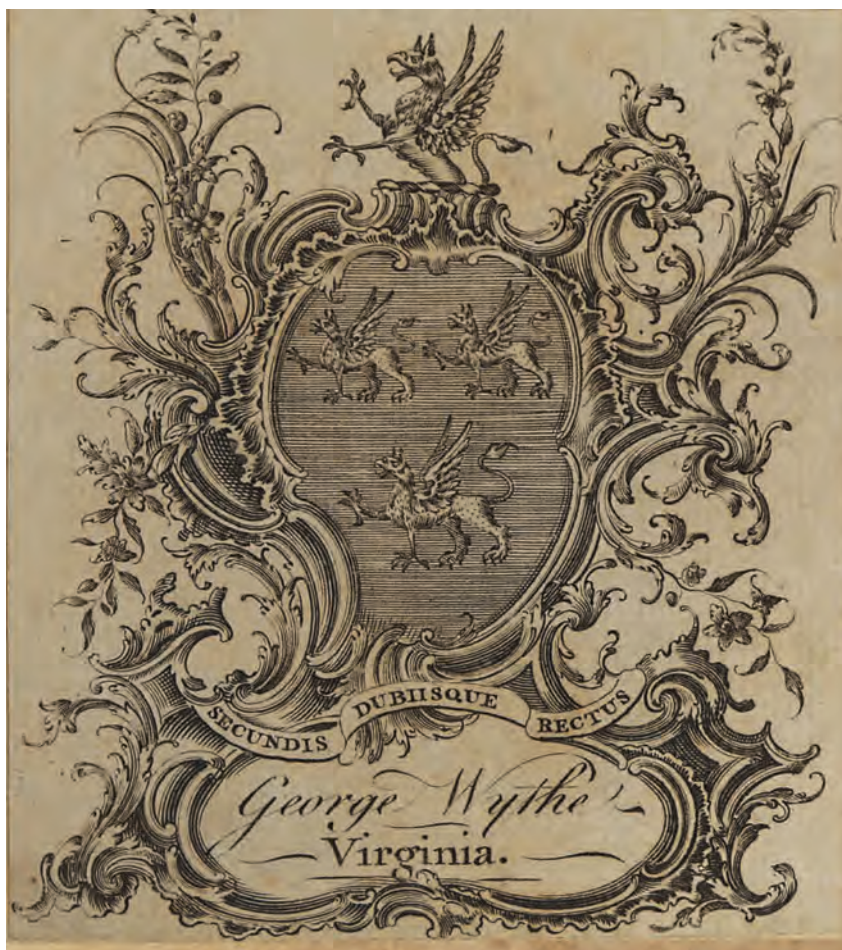 SECUNDIS DUBIISQUE RECTUS
George Wythe
Virginia.